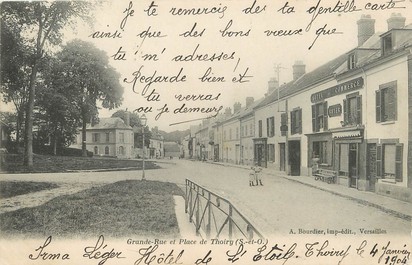 je te remercie de ta gentille carte
ainsi que des bons vœux que
tu m'adresses
Regarde bien et
tu verras
ou je demeure
CAFÉ DU COMMERCE
CAFÉ
A. Bourdier, imp-édit., Versailles
Grande-Rue et Place de Thoiry (S.-et-O.)
Irma Léger Hôtel de l'Etoile Thoiry (S. et O.) 4 Janvier
1904